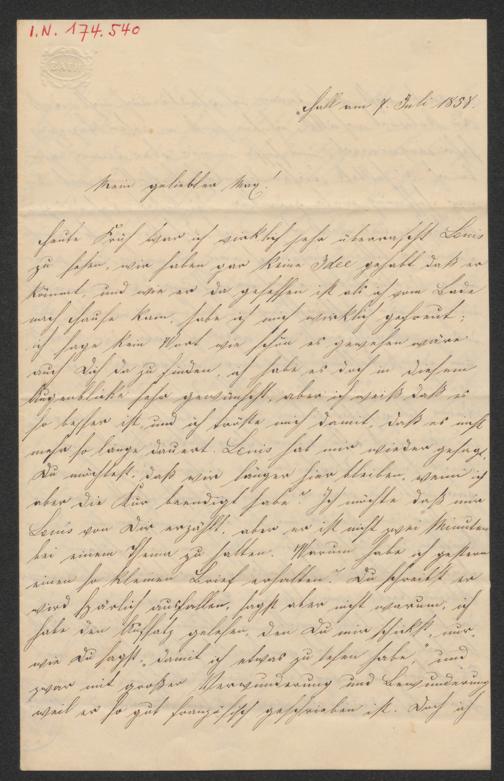 I.N. 174.540
BATH
Hall am 7. Juli 1858.
Mein geliebter Max!
Heute Früh war ich wirklich sehr überrascht Louis
zu sehen, wir haben gar keine Idee gehabt daß er
kömmt, und wie er da gesessen ist als ich vom Bade
nach Hause kam, habe ich mich wirklich gefreut;
ich sage kein Wort wie schön es gewesen wäre
auch Dich da zu finden, ich habe es doch in diesem
Augenblicke sehr gewünscht, aber ich weiß daß es
so besser ist, und ich tröste mich damit, daß es nicht
mehr so lange dauert. Louis hat mir wieder gesagt,
Du möchtest, daß wir länger hier bleiben, wenn ich
aber die Kur beendigt habe? Ich möchte daß mir
Louis von Dir erzählt, aber er ist nicht zwei Minuten
bei einem Thema zu halten. Warum habe ich gestern
einen so kleinen Brief erhalten? Du schreibst er
wird spärlich ausfallen, sagst aber nicht warum, ich
habe den Aufsatz gelesen, den Du mir schickst, nur,
wie Du sagst, „damit ich etwas zu lesen habe" und
zwar mit großer Verwunderung und Bewunderung
weil er so gut französisch geschrieben ist. Doch ich